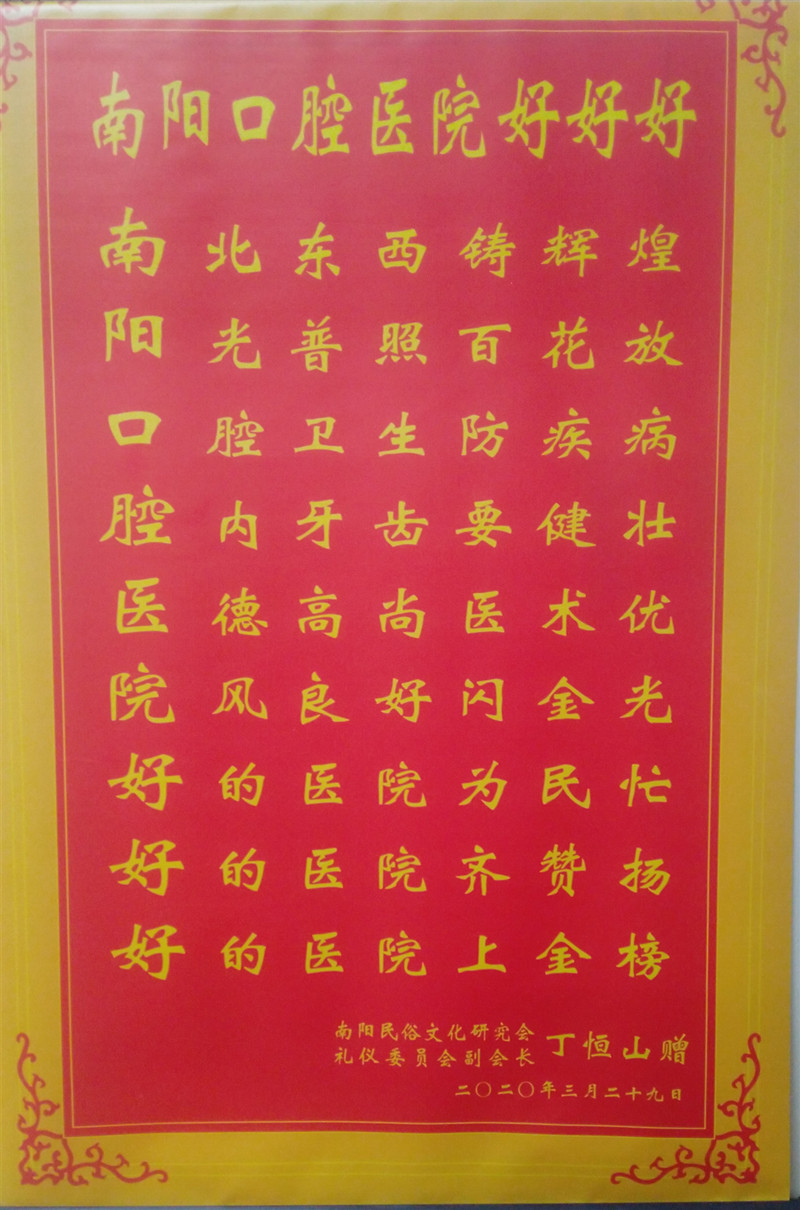 南阳口腔医院好好好
南北东西铸辉煌
阳光普照百花放
口腔卫生防疾病
腔内牙齿要健壮
医德高尚医术优
院风良好闪金光
好的医院为民忙
好的医院齐赞扬
好的医院上金榜
南阳民俗文化研究会
礼仪委员会副会长 丁恒山赠
二〇二〇年三月二十九日